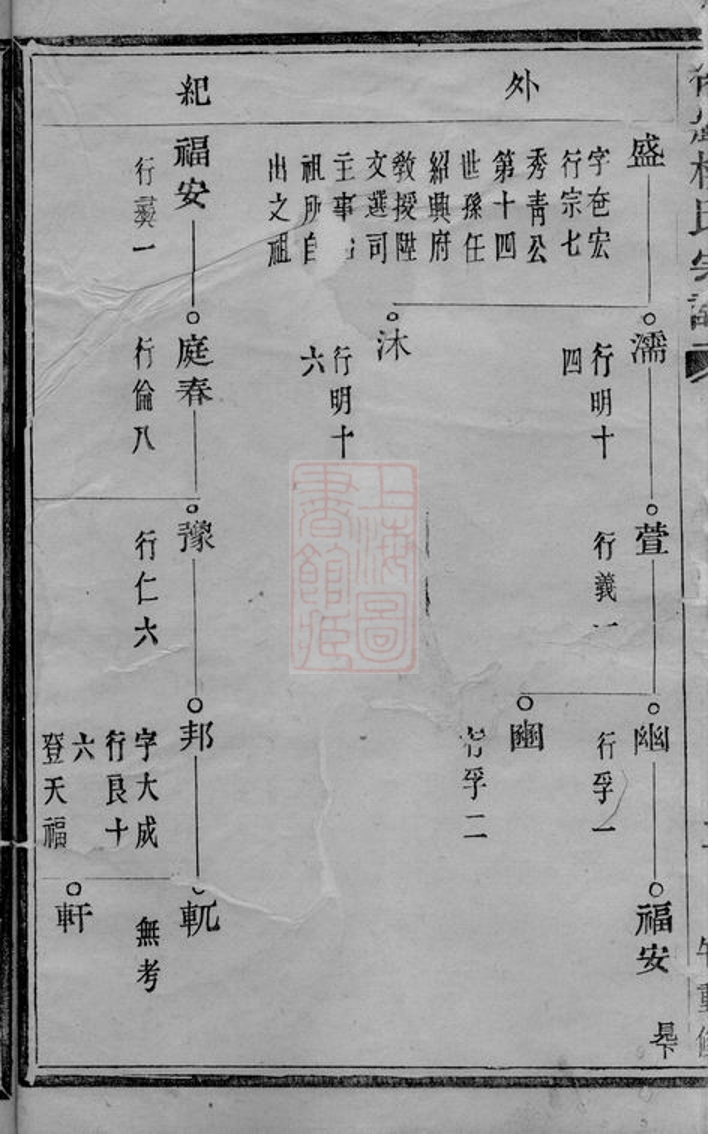 外紀
盛
字奄宏
行宗七
秀青公
第十四
世孫任
紹興府
教授陞
文選司
主事
祖所自
出之祖
濡
行明十
四
沐
行明十
六
萱
行義一
豳
行孚一
行孚二
福安
福安
庭春
行倫八
豫
行仁六
邦
字大成
行良十
六
登天福
軏
無考
軒
上海圖
書館藏